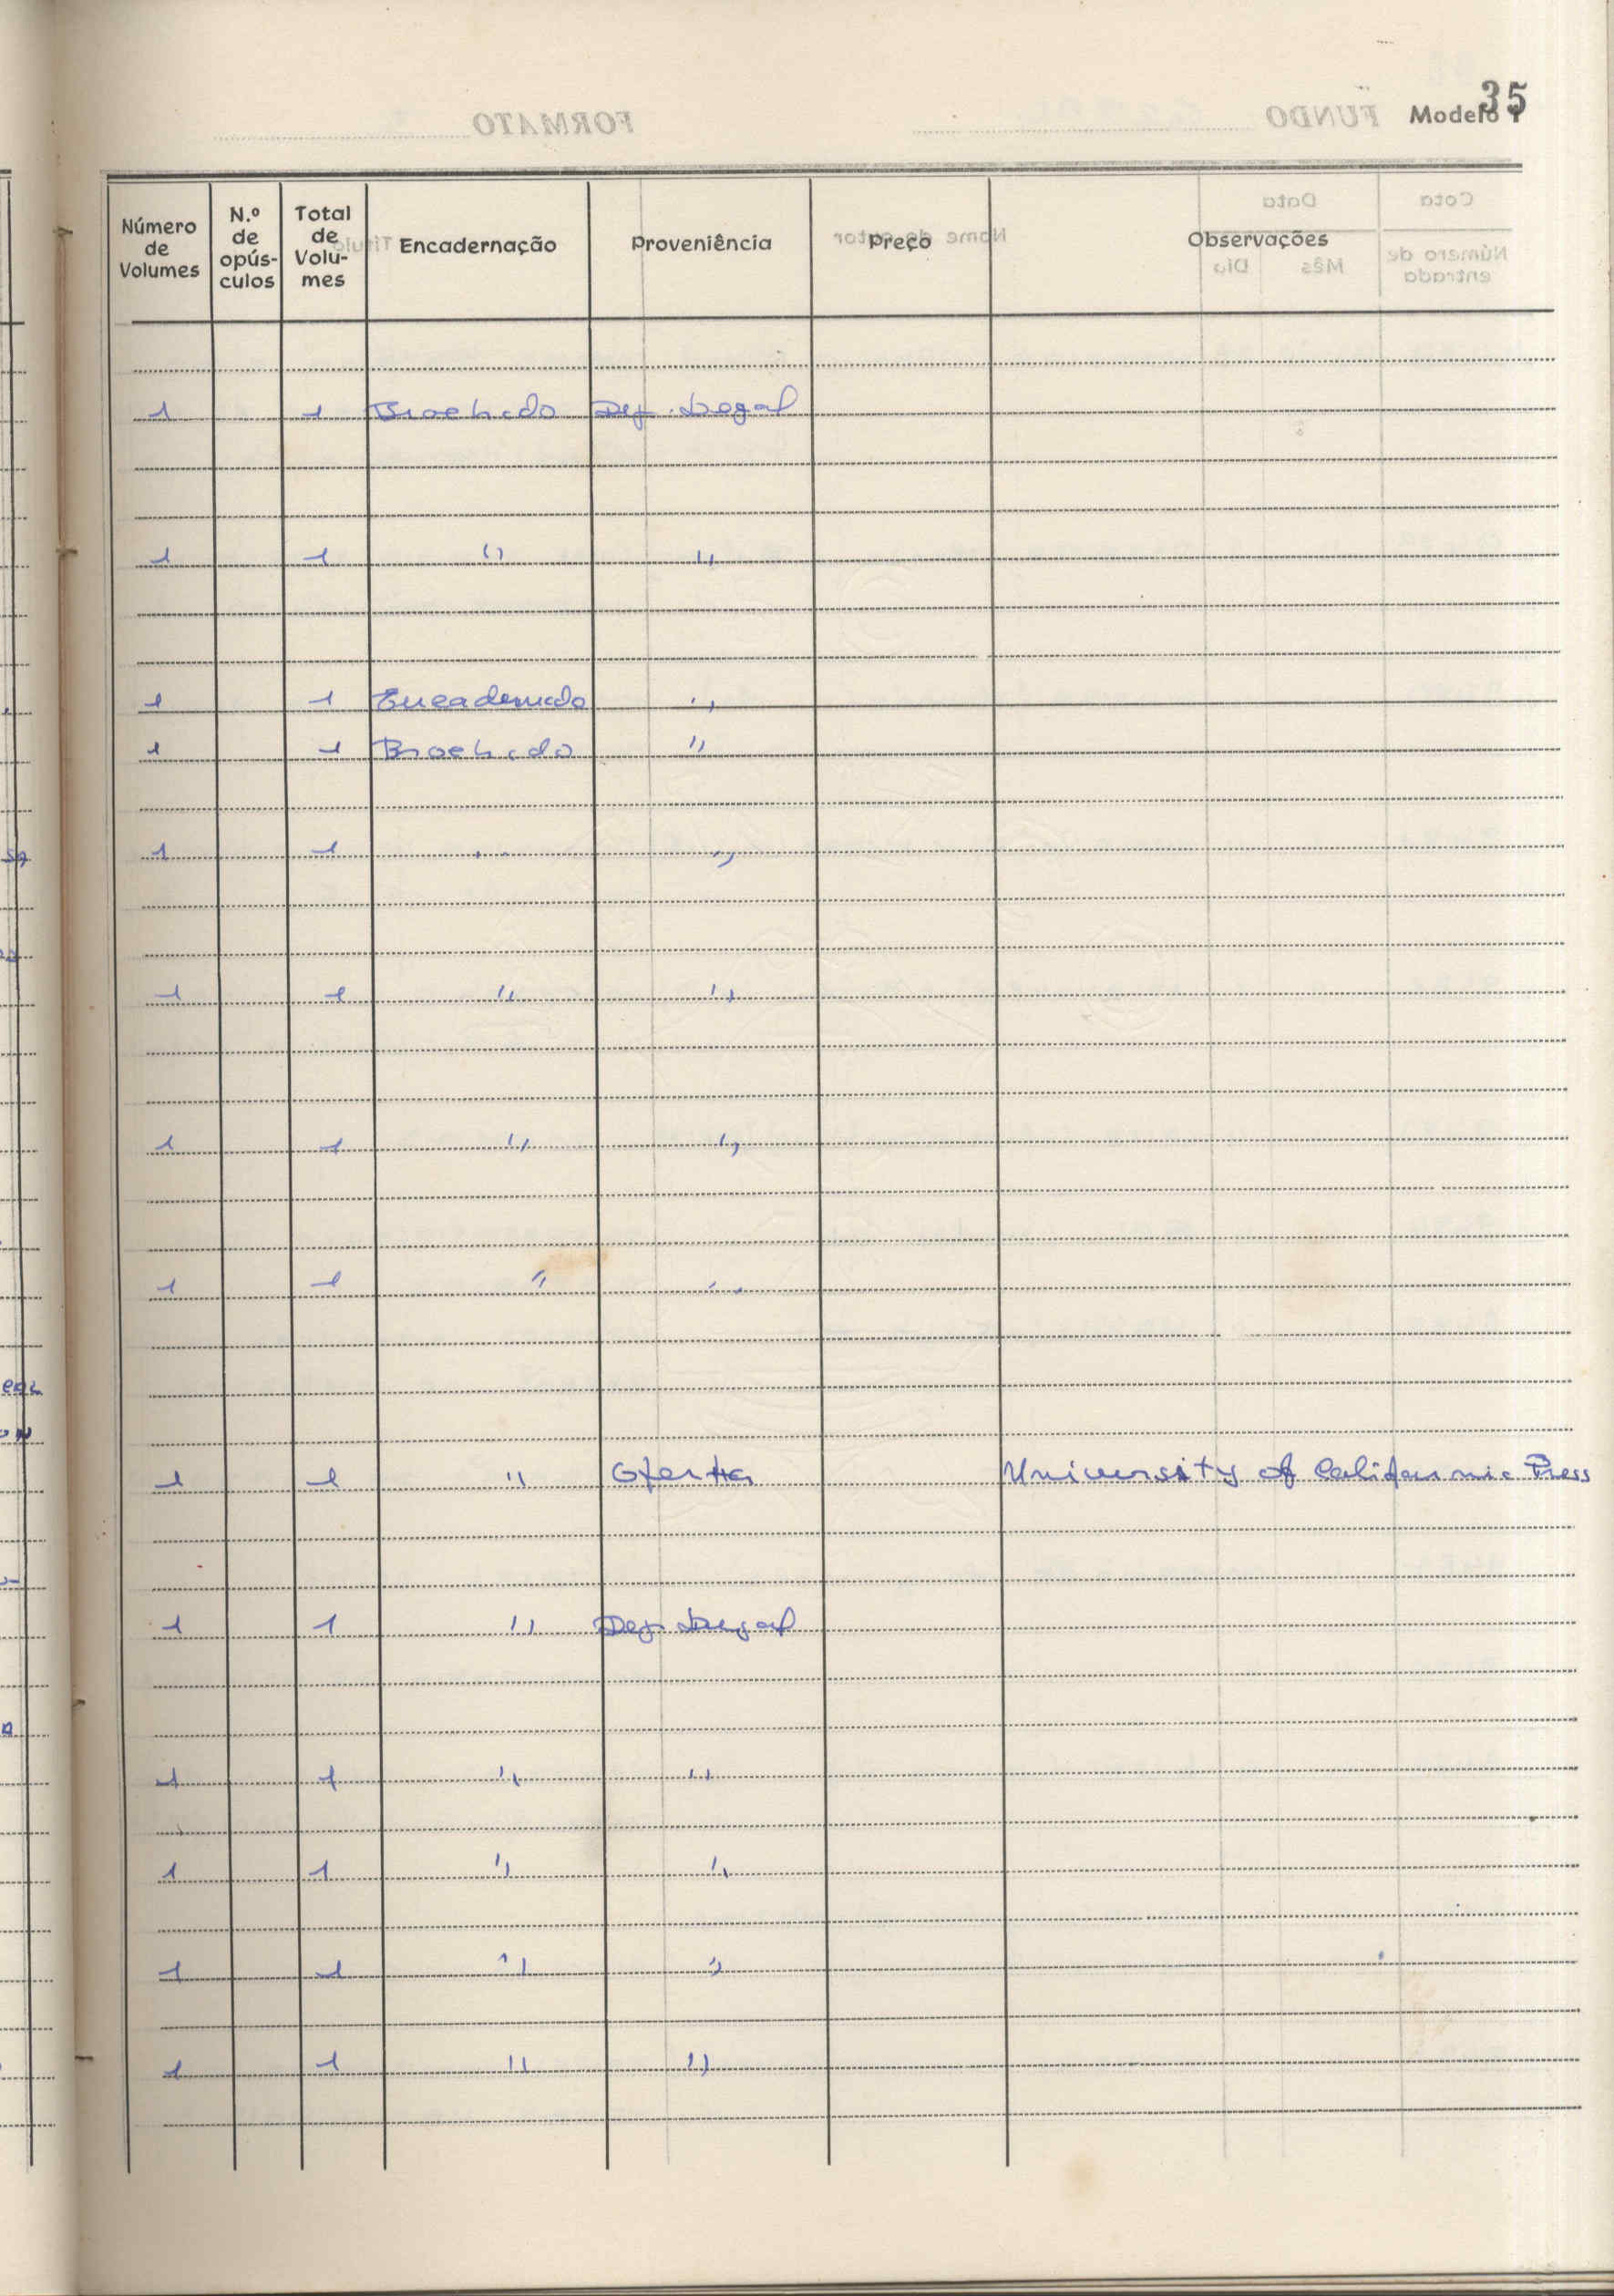 35
Modelo 1
Número de Volumes | N.º de opús-culos | Total de Volu-mes | Encadernação | Proveniência | Preço | Observações
1 1 Brochado Dep. Legal
1 1 " "
1 1 Encadernado "
1 1 Brochado "
1 1 " "
1 1 " "
1 1 " "
1 1 " "
1 1 " Oferta University of California Press
1 1 " Dep. Legal
1 1 " "
1 1 " "
1 1 " "
1 1 " "